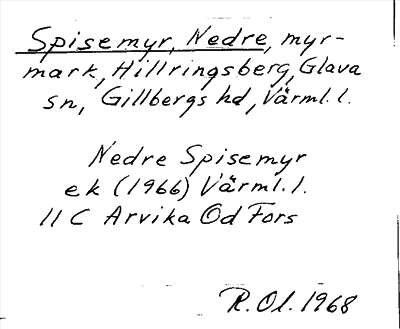 Spisemyr, Nedre, myr-
mark, Hillringsberg, Glava
sn, Gillbergs hd, Värml. l.
Nedre Spisemyr
ek (1966) Värml. l.
11 C Arvika Od Fors
R. Ol. 1968